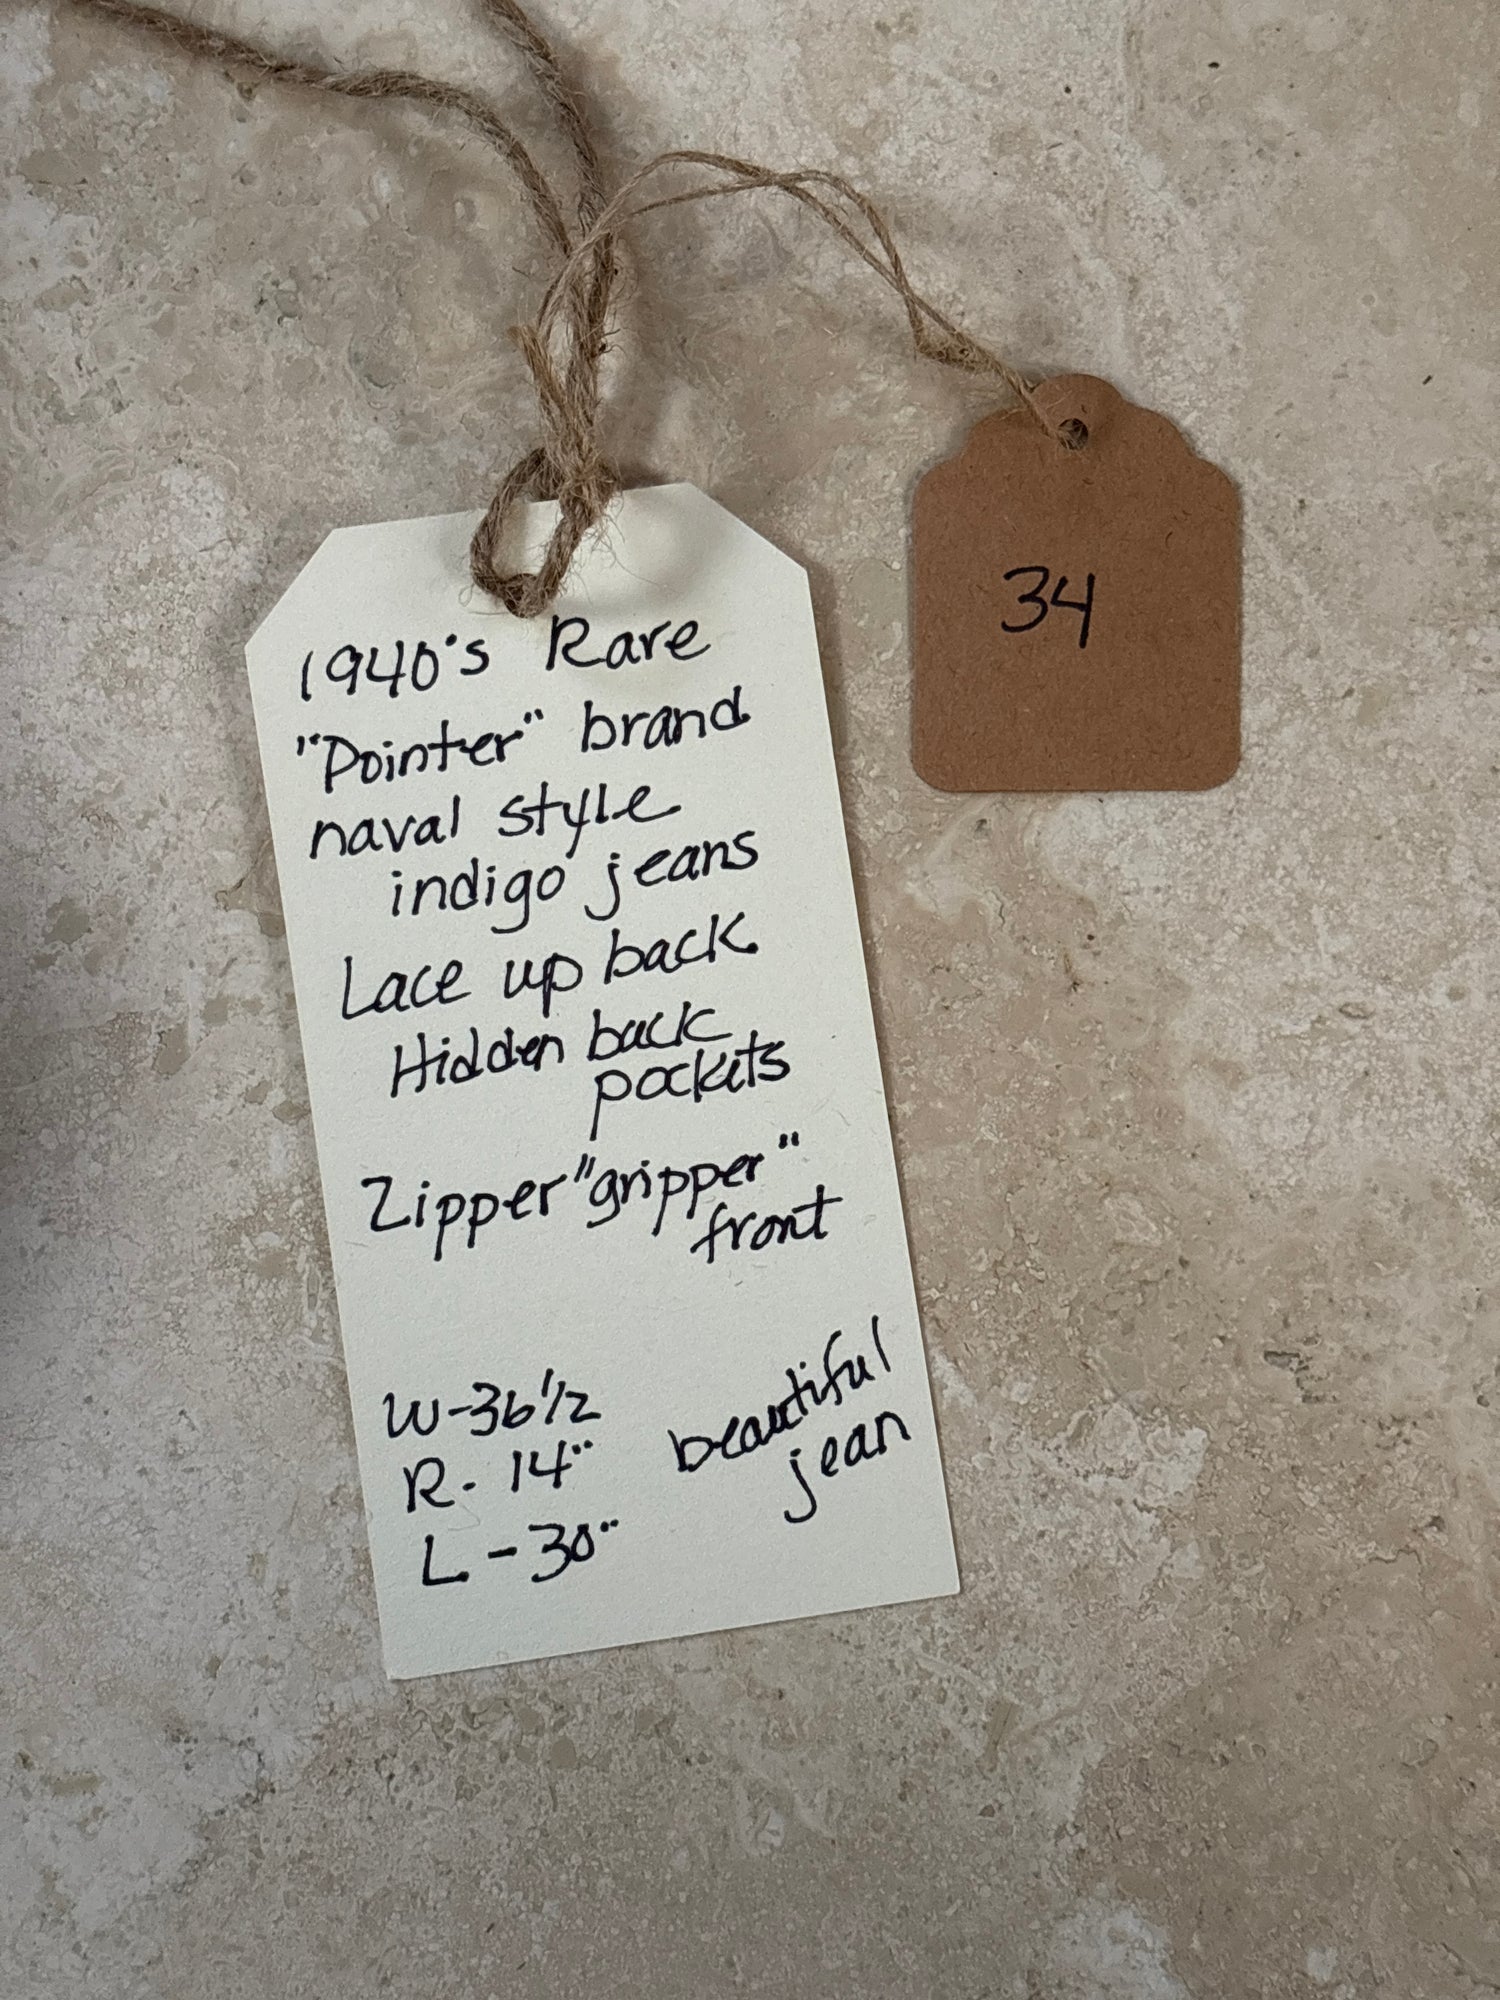 1940's Rare
"Pointer" brand
naval style
indigo jeans
Lace up back
Hidden back
pockets
Zipper "gripper"
front
W-36 1/2
R. 14"
L - 30"
beautiful
jean
34